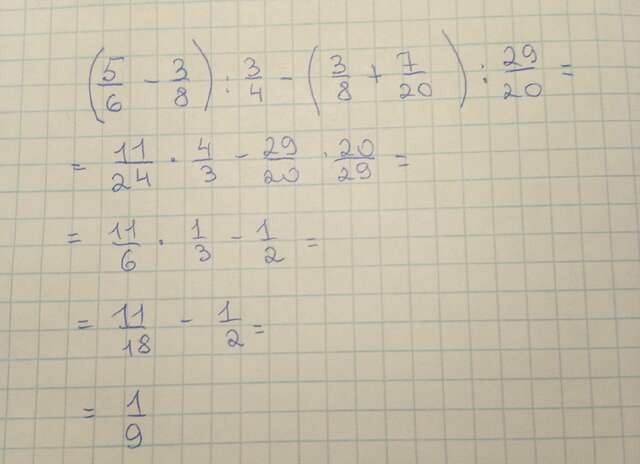 (5/6 - 3/8) : 3/4 - (3/8 + 7/20) : 29/20 =
= 11/24 · 4/3 - 29/20 · 20/29 =
= 11/6 · 1/3 - 1/2 =
= 11/18 - 1/2 =
= 1/9